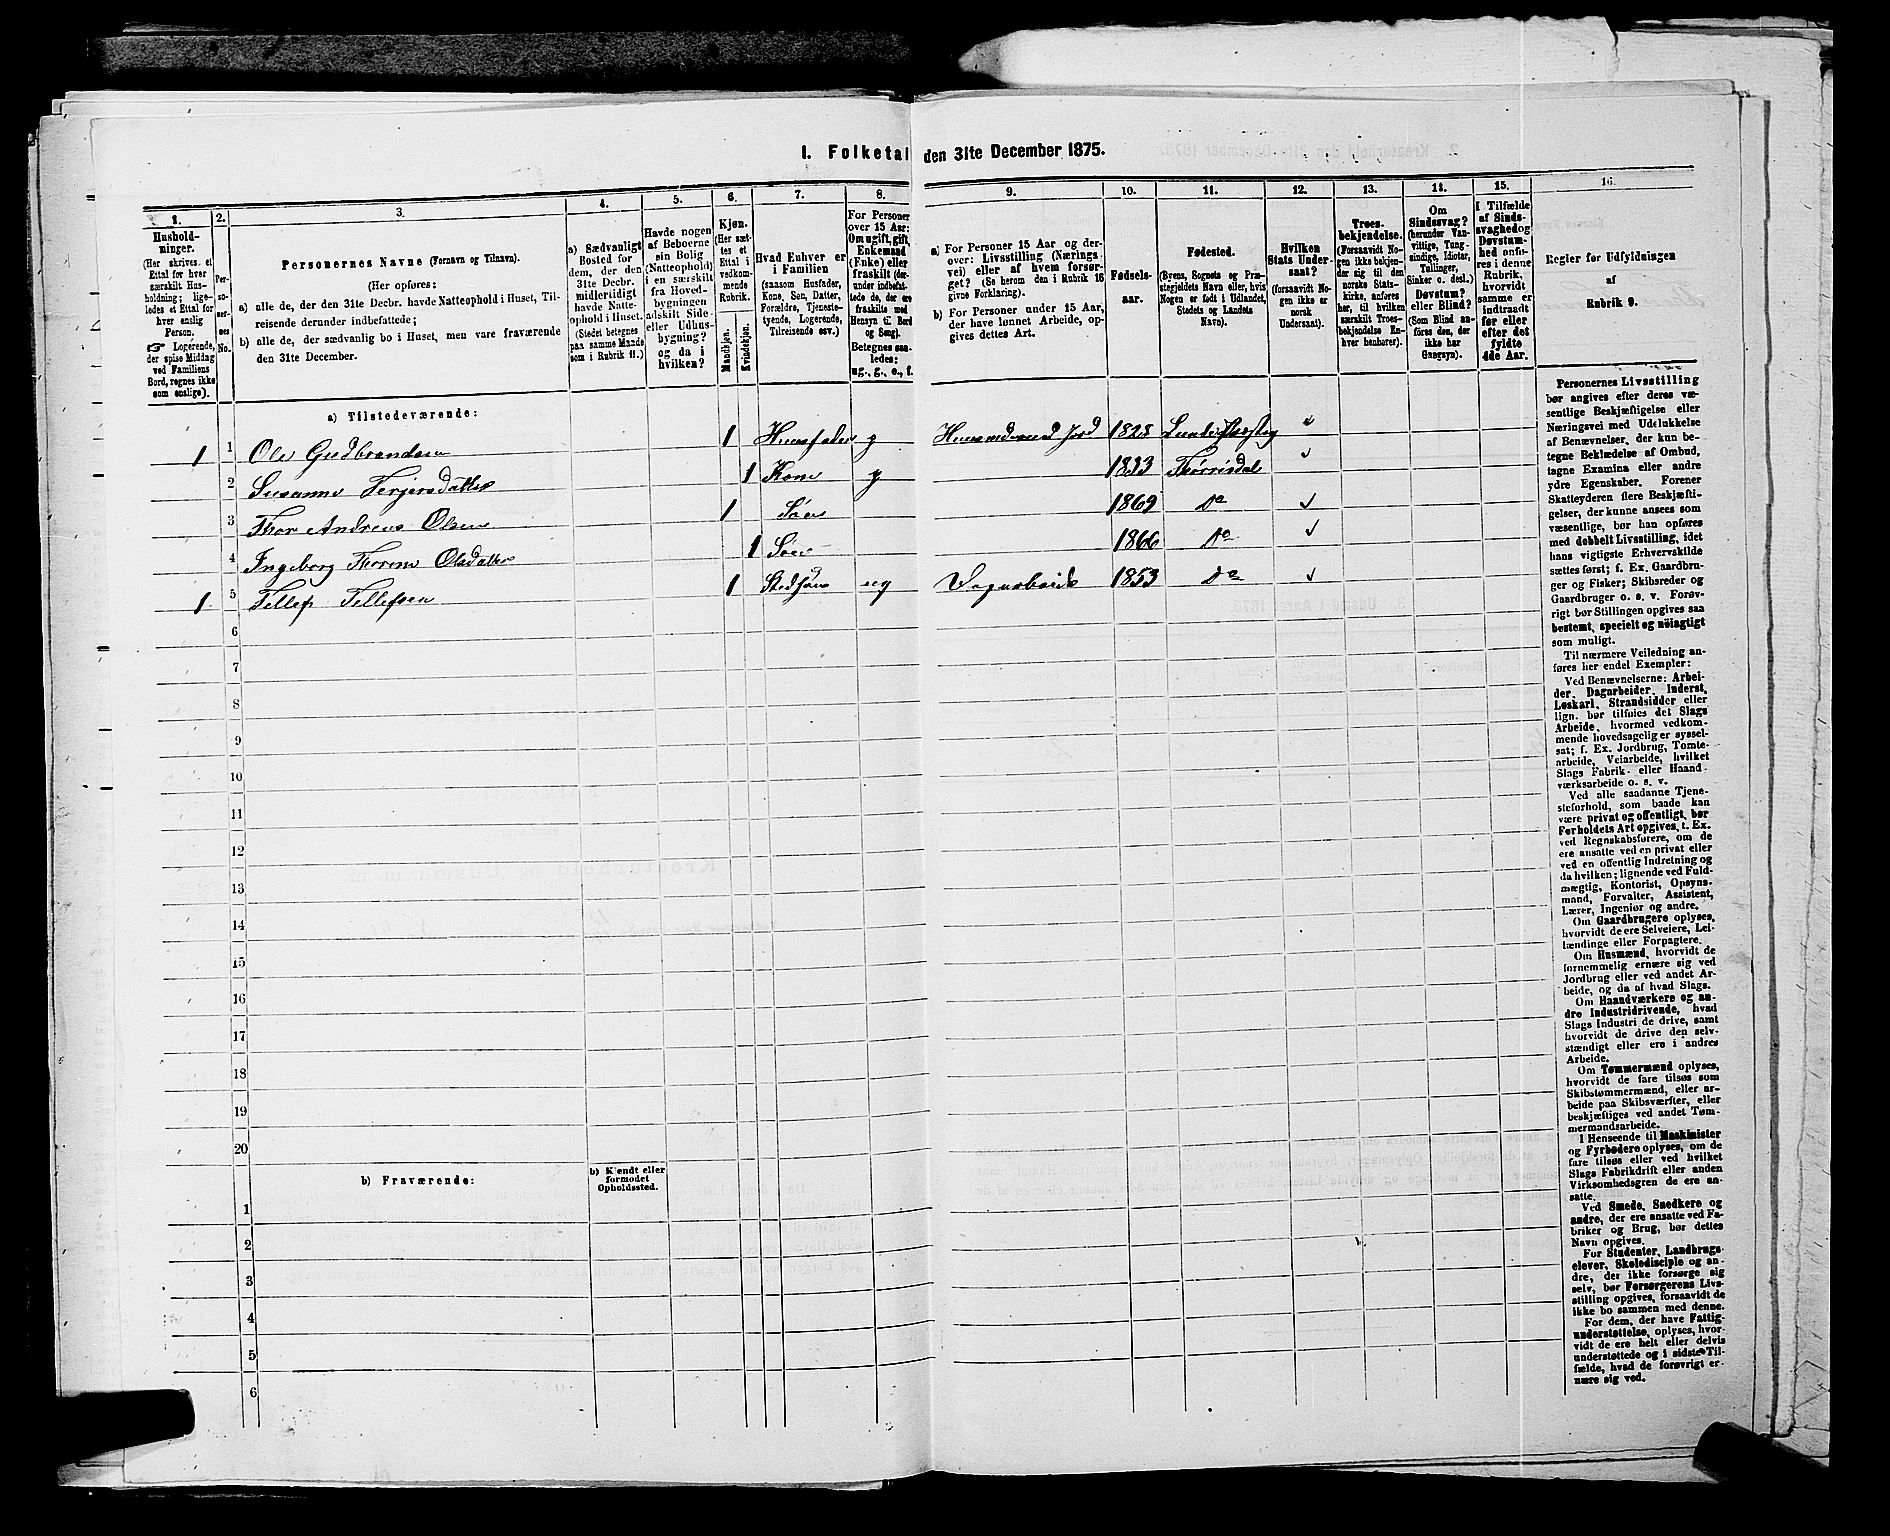 I. Folketal den 31te December 1875.
1.
Husholdninger.
(Her skrives et
Ettal for hver
særskilt Husholdning;
ligeledes et Ettal for
hver enslig
Person.
☞ Logerende,
der spise Middag
ved Familiens
Bord, regnes ikke
som enslige).
2.
Personernes No.
3.
Personernes Navne (Fornavn og Tilnavn).
(Her opføres:
a) alle de, der den 31te Decbr. havde Natteophold i Huset, Tilreisende derunder indbefattede;
b) alle de, der sædvanlig bo i Huset, men vare fraværende
den 31te December.
4.
a) Sædvanligt
Bosted for
dem, der den
31te Decbr.
midlertidigt
havde Natteophold i Huset.
(Stedet betegnes
paa samme Maade
som i Rubrik 11.)
5.
Havde nogen
af Beboerne
sin Bolig
(Natteophold)
i en særskilt
fra Hovedbygningen
adskilt Side-
eller Udhusbygning?
og da i
hvilken?
6.
Kjøn.
(Her sættes et
Ettal i
vedkommende
Rubrik.
Mandkjøn.
Kvindekjøn.
7.
Hvad Enhver er
i Familien
(saasom Husfader,
Kone, Søn, Datter,
Forældre, Tjenestetyende, Logerende,
Tilreisende osv.)
8.
For Personer
over 15 Aar:
Om ugift, gift,
Enkemand
(Enke) eller
fraskilt (derunder indbefattede de, der ere
fraskilte med
Hensyn til Bord
og Seng).
Betegnes saaledes:
ug., g., e., f.
9.
a) For Personer 15 Aar og derover: Livsstilling (Næringsvei) eller af hvem forsørget? (Se herom den i Rubrik 16
givne Forklaring).
b) For Personer under 15 Aar,
der have lønnet Arbeide, opgives dettes Art.
10.
Fødselsaar.
11.
Fødested.
(Byens, Sognets og Præstegjeldets Navn, eller, hvis
Nogen er født i Udlandet,
Stedets og Landets
Navn).
12.
Hvilken
Stats Undersaat?
(forsaavidt Nogen ikke er
norsk
Undersaat).
13.
Troesbekjendelse.
(Forsaavidt Nogen ikke bekjender sig til den
norske Statskirke, anføres
her, til hvilken
særskilt Troesbekjendelse Enhver henhører).
14.
Om
Sindssvag?
(herunder Vanvittige, Tungsindige, Idioter,
Tullinger,
Sinker o. desl.)
Døvstum?
eller Blind?
(Som Blind anføres den, der
ikke har
Gangsyn).
15.
I Tilfælde
af Sindssvaghed og
Døvstumhed anføres i denne
Rubrik,
hvorvidt
samme er
indtraadt
før eller
efter det
fyldte
4de Aar.
16.
Regler for Udfyldningen
af
Rubrik 9.
a) Tilstedeværende:
1 1 Ole Gudbrandsen 1 Huusfader g Huusmd med Jord 1825 ✓
2 Susanne Terjersdatter 1 Kone g 1833 ✓
3 Thor Andreas Olsen 1 Søn 1869 Do ✓
4 Ingeborg Thorine Olsdatter 1 1866 Do ✓
1 5 Tellef Tellefsen 1 Stedsøn ug Dagarbeide 1853 Do ✓
6
7
8
9
10
11
12
13
14
15
16
17
18
19
20
b) Fraværende:
b) Kjendt eller
formodet
Opholdssted.
1
2
3
4
5
6
Personernes Livsstilling
bør angives efter deres væsentlige Beskjæftigelse eller
Næringsvei med Udelukkelse
af Benævnelser, der kun betegne Beklædelse af Ombud,
tagne Examina eller andre
ydre Egenskaber. Forener
Skatteyderen flere Beskjæftigelser, der kunne ansees som
væsentlige, bør han opføres
med dobbelt Livsstilling, idet
hans vigtigste Erhvervskilde
sættes først; f. Ex. Gaardbruger og Fisker; Skibsreder og
Gaardbruger o. s. v. Forøvrigt bør Stillingen opgives saa
bestemt, specielt og nøiagtigt
som muligt.
Til nærmere Veiledning anføres her endel Exempler:
Ved Benævnelserne: Arbeider, Dagarbeider, Inderst,
Løskarl, Strandsidder eller
lign. bør tilføies det Slags
Arbeide, hvormed vedkommende hovedsagelig er sysselsat; f. Ex. Jordbrug, Tomtearbeide, Veiarbeide, hvilket
Slags Fabrik- eller Haandværksarbeide o. s. v.
Ved alle saadanne Tjenesteforhold, som baade kan
være privat og offentligt, bør
Forholdets Art opgives, t. Ex.
ved Regnskabsførere, om de
ere ansatte ved en privat eller
ved en offentlig Indretning og
da hvilken; lignende ved Fuldmægtig, Kontorist, Opsynsmand, Forvalter, Assistent,
Lærer, Ingeniør og andre.
Om Gaardbrugere oplyses,
hvorvidt de ere Selveiere, Leilændinge eller Forpagtere.
Om Husmænd, hvorvidt de
fornemmelig ernære sig ved
Jordbrug eller ved andet Arbeide, og da af hvad Slags.
Om Haandværkere og andre Industridrivende, hvad
Slags Industri de drive, samt
hvorvidt de drive den selvstændigt eller ere i andres
Arbeide.
Om Tømmermænd oplyses,
hvorvidt de fare tilsøs som
Skibstømmermænd, eller arbeide paa Skibsværfter, eller
beskjæftiges ved andet Tømmermandsarbeide.
I Henseende til Maskinister
og Fyrbødere oplyses, om de
fare tilsøs eller ved hvilket
Slags Fabrikdrift eller anden
Virksomhedsgren de ere ansatte.
Ved Smede, Snedkere og
andre, der ere ansatte ved Fabriker og Brug, bør dettes
Navn opgives.
For Studenter, Landbrugselever, Skoledisciple og andre, der ikke forsørge sig
selv, bør Forsørgerens Livsstilling opgives, forsaavidt de
ikke bo sammen med denne.
For dem, der have Fattigunderstøttelse, oplyses, hvorvidt de ere helt eller delvis
understøttede og i sidste Tilfælde, hvad de forøvrigt ernære sig ved.